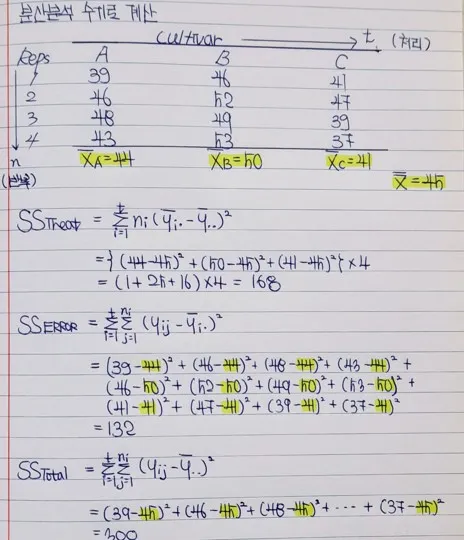 분산분석 수기로 계산
cultivar t. (처리)
Reps A B C
1 39 46 41
2 46 52 47
3 48 49 39
4 43 53 37
n X̄A=44 X̄B=50 X̄C=41
(반복) X̿=45
SSTreat = Σ(i=1→t) ni(ȳi. - ȳ..)²
= {(44-45)² + (50-45)² + (41-45)²} × 4
= (1+25+16) × 4 = 168
SSERROR = Σ(i=1→t) Σ(j=1→ni) (yij - ȳi.)²
= (39-44)² + (46-44)² + (48-44)² + (43-44)² +
(46-50)² + (52-50)² + (49-50)² + (53-50)² +
(41-41)² + (47-41)² + (39-41)² + (37-41)²
= 132
SSTotal = Σ(i=1→t) Σ(j=1→ni) (yij - ȳ..)²
= (39-45)² + (46-45)² + (48-45)² + ··· + (37-45)²
= 300